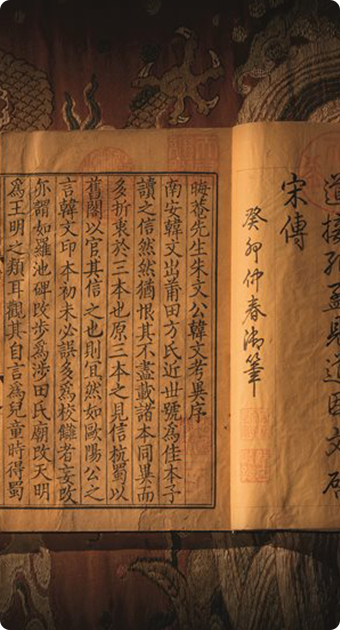 道接孔孟見道因文
宋傳
癸卯仲春御筆
晦菴先生朱文公韓文考異序
南安韓文出莆田方氏近世號為佳本予
讀之信然然猶恨其不盡載諸本同異而
多折衷於三本也原三本之見信杭蜀以
舊閣以官其信之也則宜然如歐陽公之
言韓文印本初未必誤多為校讎者妄改
亦謂如羅池碑改步為涉田氏廟改天明
為王明之類耳觀其自言為兒童時得蜀